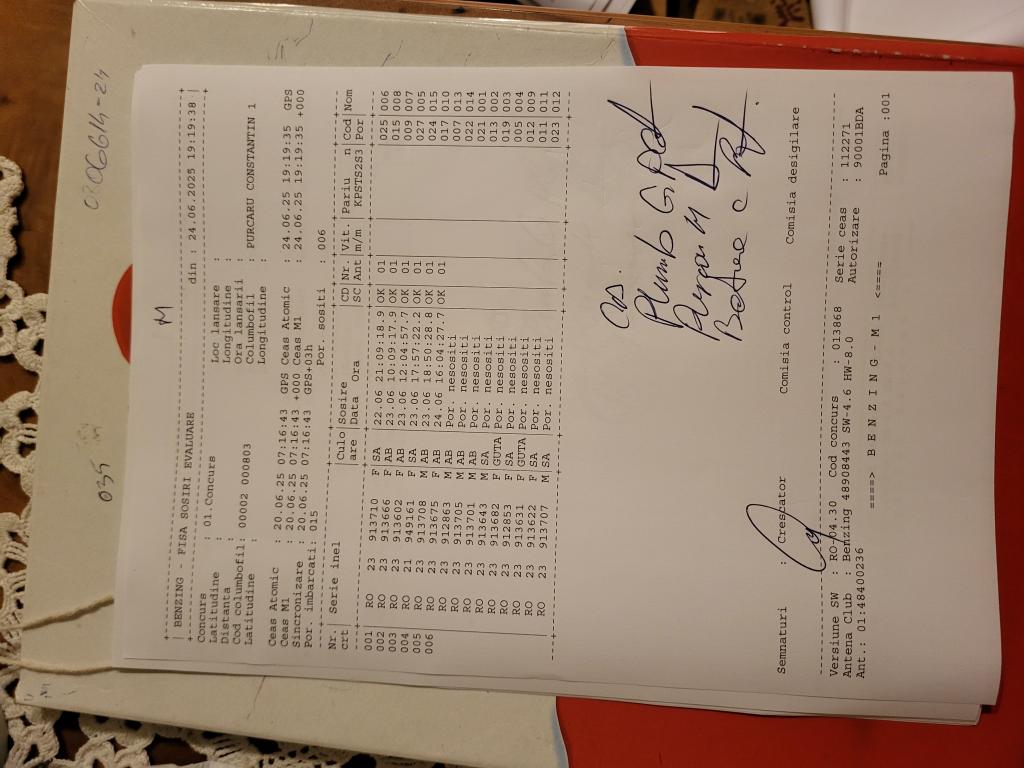 035
0306614-24
M
| BENZING - FISA SOSIRI EVALUARE din : 24.06.2025 19:19:38 |
Concurs : 01.Concurs Loc lansare :
Latitudine : Longitudine :
Distanta : Ora lansarii :
Cod columbofil: 00002 000803 Columbofil : PURCARU CONSTANTIN 1
Latitudine : Longitudine :
Ceas Atomic : 20.06.25 07:16:43 GPS Ceas Atomic : 24.06.25 19:19:35 GPS
Ceas M1 : 20.06.25 07:16:43 +000 Ceas M1 : 24.06.25 19:19:35 +000
Sincronizare : 20.06.25 07:16:43 GPS+03h
Por. imbarcati: 015 Por. sositi : 006
Nr. | Serie inel |Culo |Sosire |CD|Nr. |Vit. |Pariu n |Cod |Nom
crt | |are |Data Ora |SC|Ant |m/m |KPSTS2S3 |Por |
001 | RO 23 913710 F |SA |22.06 21:09:18.9 |OK| 01 |025 |006
002 | RO 23 913666 F |AB |23.06 10:09:17.9 |OK| 01 |015 |008
003 | RO 23 913602 F |AB |23.06 12:04:57.7 |OK| 01 |009 |007
004 | RO 21 949161 F |SA |23.06 17:57:22.2 |OK| 01 |007 |005
005 | RO 23 913708 M |AB |23.06 18:50:28.8 |OK| 01 |024 |015
006 | RO 23 913675 F |AB |24.06 16:04:27.7 |OK| 01 |017 |010
| RO 23 912863 M |AB |Por. nesositi |007 |013
| RO 23 913705 M |AB |Por. nesositi |022 |014
| RO 23 913701 M |AB |Por. nesositi |021 |001
| RO 23 913643 M |SA |Por. nesositi |013 |002
| RO 23 913682 F |GUTA |Por. nesositi |019 |003
| RO 23 912853 F |SA |Por. nesositi |005 |004
| RO 23 913631 F |GUTA |Por. nesositi |012 |009
| RO 23 913622 F |SA |Por. nesositi |011 |011
| RO 23 913707 M |SA |Por. nesositi |023 |012
Plumb G
Semnaturi : Crescator Comisia control Comisia desigilare
Versiune SW : RO-04.30 Cod concurs : 013868 Serie ceas : 112271
Antena Club : Benzing 48908443 SW-4.6 HW-8.0 Autorizare : 90001BDA
Ant.: 01:48400236
====> B E N Z I N G - M 1 <==== Pagina :001